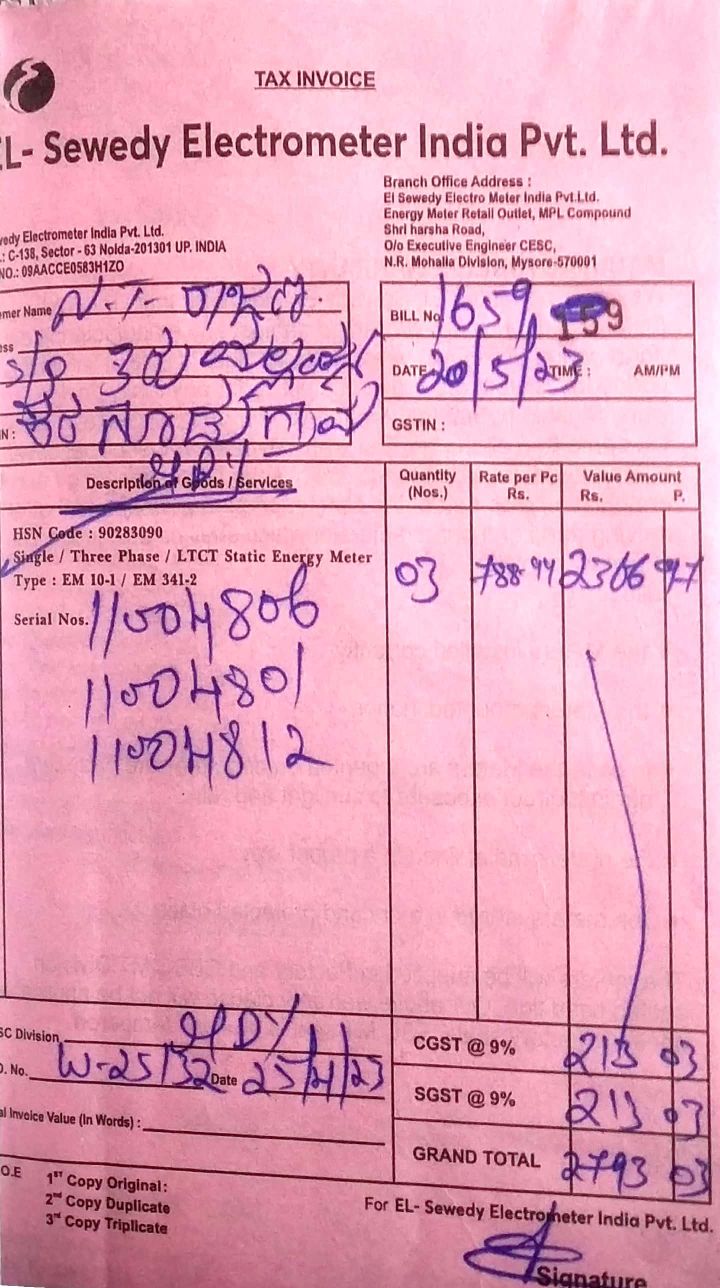 TAX INVOICE
EL- Sewedy Electrometer India Pvt. Ltd.
wedy Electrometer India Pvt. Ltd.
.: C-138, Sector - 63 Noida-201301 UP. INDIA
NO.: 09AACCE0583H1ZO
Branch Office Address :
El Sewedy Electro Meter India Pvt.Ltd.
Energy Meter Retail Outlet, MPL Compound
Shri harsha Road,
O/o Executive Engineer CESC,
N.R. Mohalla Division, Mysore-570001
mer Name ನ.T.
ess
N :
BILL No. 1659 159
DATE 20/5/23 TIME : AM/PM
GSTIN :
Description of Goods / Services
Quantity (Nos.)
Rate per Pc Rs.
Value Amount
Rs. P.
HSN Code : 90283090
Single / Three Phase / LTCT Static Energy Meter
Type : EM 10-1 / EM 341-2
03 788-94 2366 97
Serial Nos. 11004806
11004801
11004812
SC Division
O. No. W-25/32 Date 25/4/23
al Invoice Value (In Words) :
CGST @ 9% 213 03
SGST @ 9% 213 03
GRAND TOTAL 2793 03
O.E
1ST Copy Original:
2nd Copy Duplicate
3rd Copy Triplicate
For EL- Sewedy Electrometer India Pvt. Ltd.
Signature